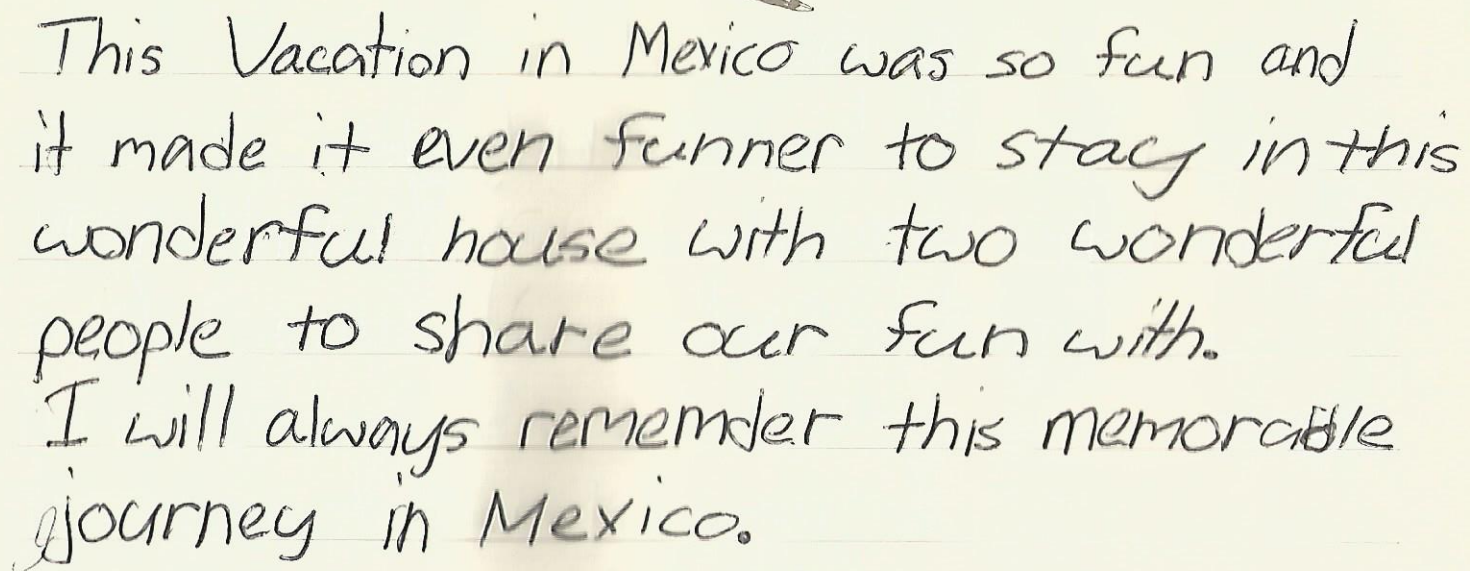 This Vacation in Mexico was so fun and
it made it even funner to stay in this
wonderful house with two wonderful
people to share our fun with.
I will always rememder this memorable
journey in Mexico.